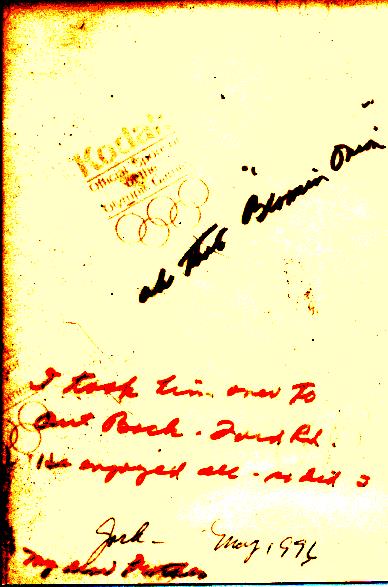 Kodak
Official Sponsor
of the
Olympic Games
oh that "Bloomin Onion"
I took him over to
Out Back - Ford Rd.
He enjoyed all - so did I
Jack - May, 1996
My dear brother